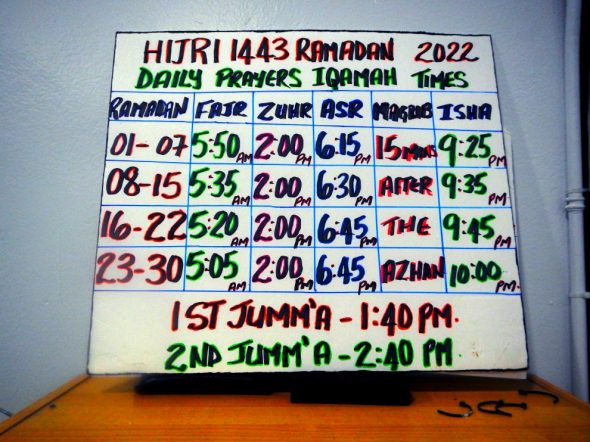 HIJRI 1443 RAMADAN 2022
DAILY PRAYERS IQAMAH TIMES
RAMADAN FAJR ZUHR ASR MAGRIB ISHA
01-07 5:50 AM 2:00 PM 6:15 PM 15 MINS 9:25 PM
08-15 5:35 AM 2:00 PM 6:30 PM AFTER 9:35 PM
16-22 5:20 AM 2:00 PM 6:45 PM THE 9:45 PM
23-30 5:05 AM 2:00 PM 6:45 PM AZHAN 10:00 PM.
1ST JUMM'A - 1:40 PM.
2ND JUMM'A - 2:40 PM.